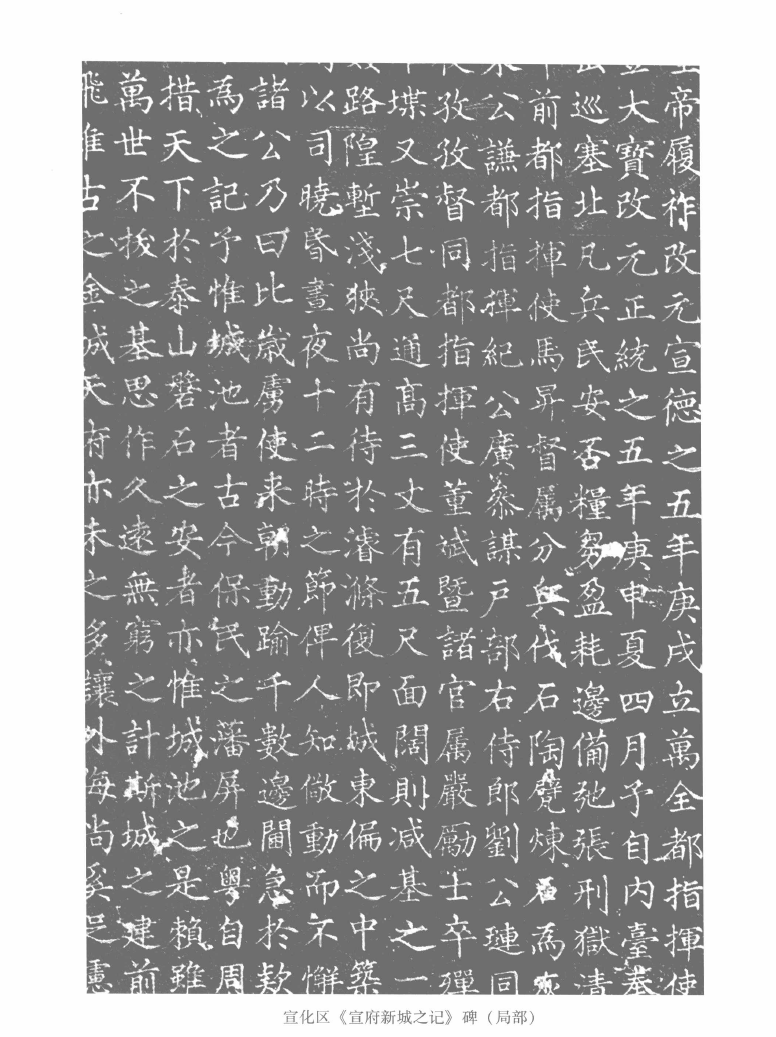 帝履祚改元宣德之五年庚戌立萬全都指揮使
大寶改元正統之五年庚申夏四月予自内臺奉
巡塞北凡兵民安否糧芻盈耗邊備弛張刑獄清
前都指揮使馬昇督属分兵伐石陶甓煉石為灰
公謙都指揮紀公廣叅謀戸部右侍郎劉公璉同
孜孜督同都指揮使董斌暨諸官属嚴勵士卒殫
堞又崇七尺通高三丈有五尺面闊則减基之一
路隍塹淺狹尚有待於濬滌復即城東偏之中築
以司曉昏晝夜十二時之節俾人知儆動而不懈
諸公乃曰比嵗虜使来朝動踰千數邊閫急於欵
為之記予惟城池者古今保民之藩屏也粤自周
措天下於泰山磐石之安者亦惟城池之是賴雖
萬世不拔之基思作久遠無窮之計斯城之建前
飛惟古之金城天府亦未之多讓外侮尚奚足慮
宣化区《宣府新城之记》碑（局部）